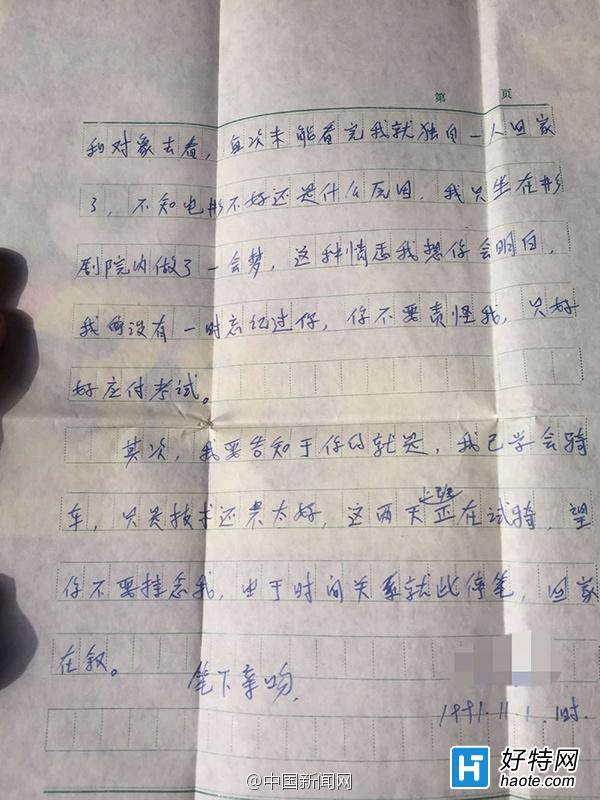 第 页
和对象去看，每次未能看完我就独自一人回家
了，不知电影不好还是什么原因，我只坐在影
剧院内做了一会梦，这种情态我想你会明白，
我毎没有一时忘记过你，你不要责怪我，只好
好应付考试。
其次，我要告知于你的就是，我已学会骑
车，只是技术还不太好，这两天正在试骑，望
你不要挂念我，由于时间关系就此停笔，回家
在叙。
笔下亲吻，
1991.11.1.
@中国新闻网
好特网
haote.com